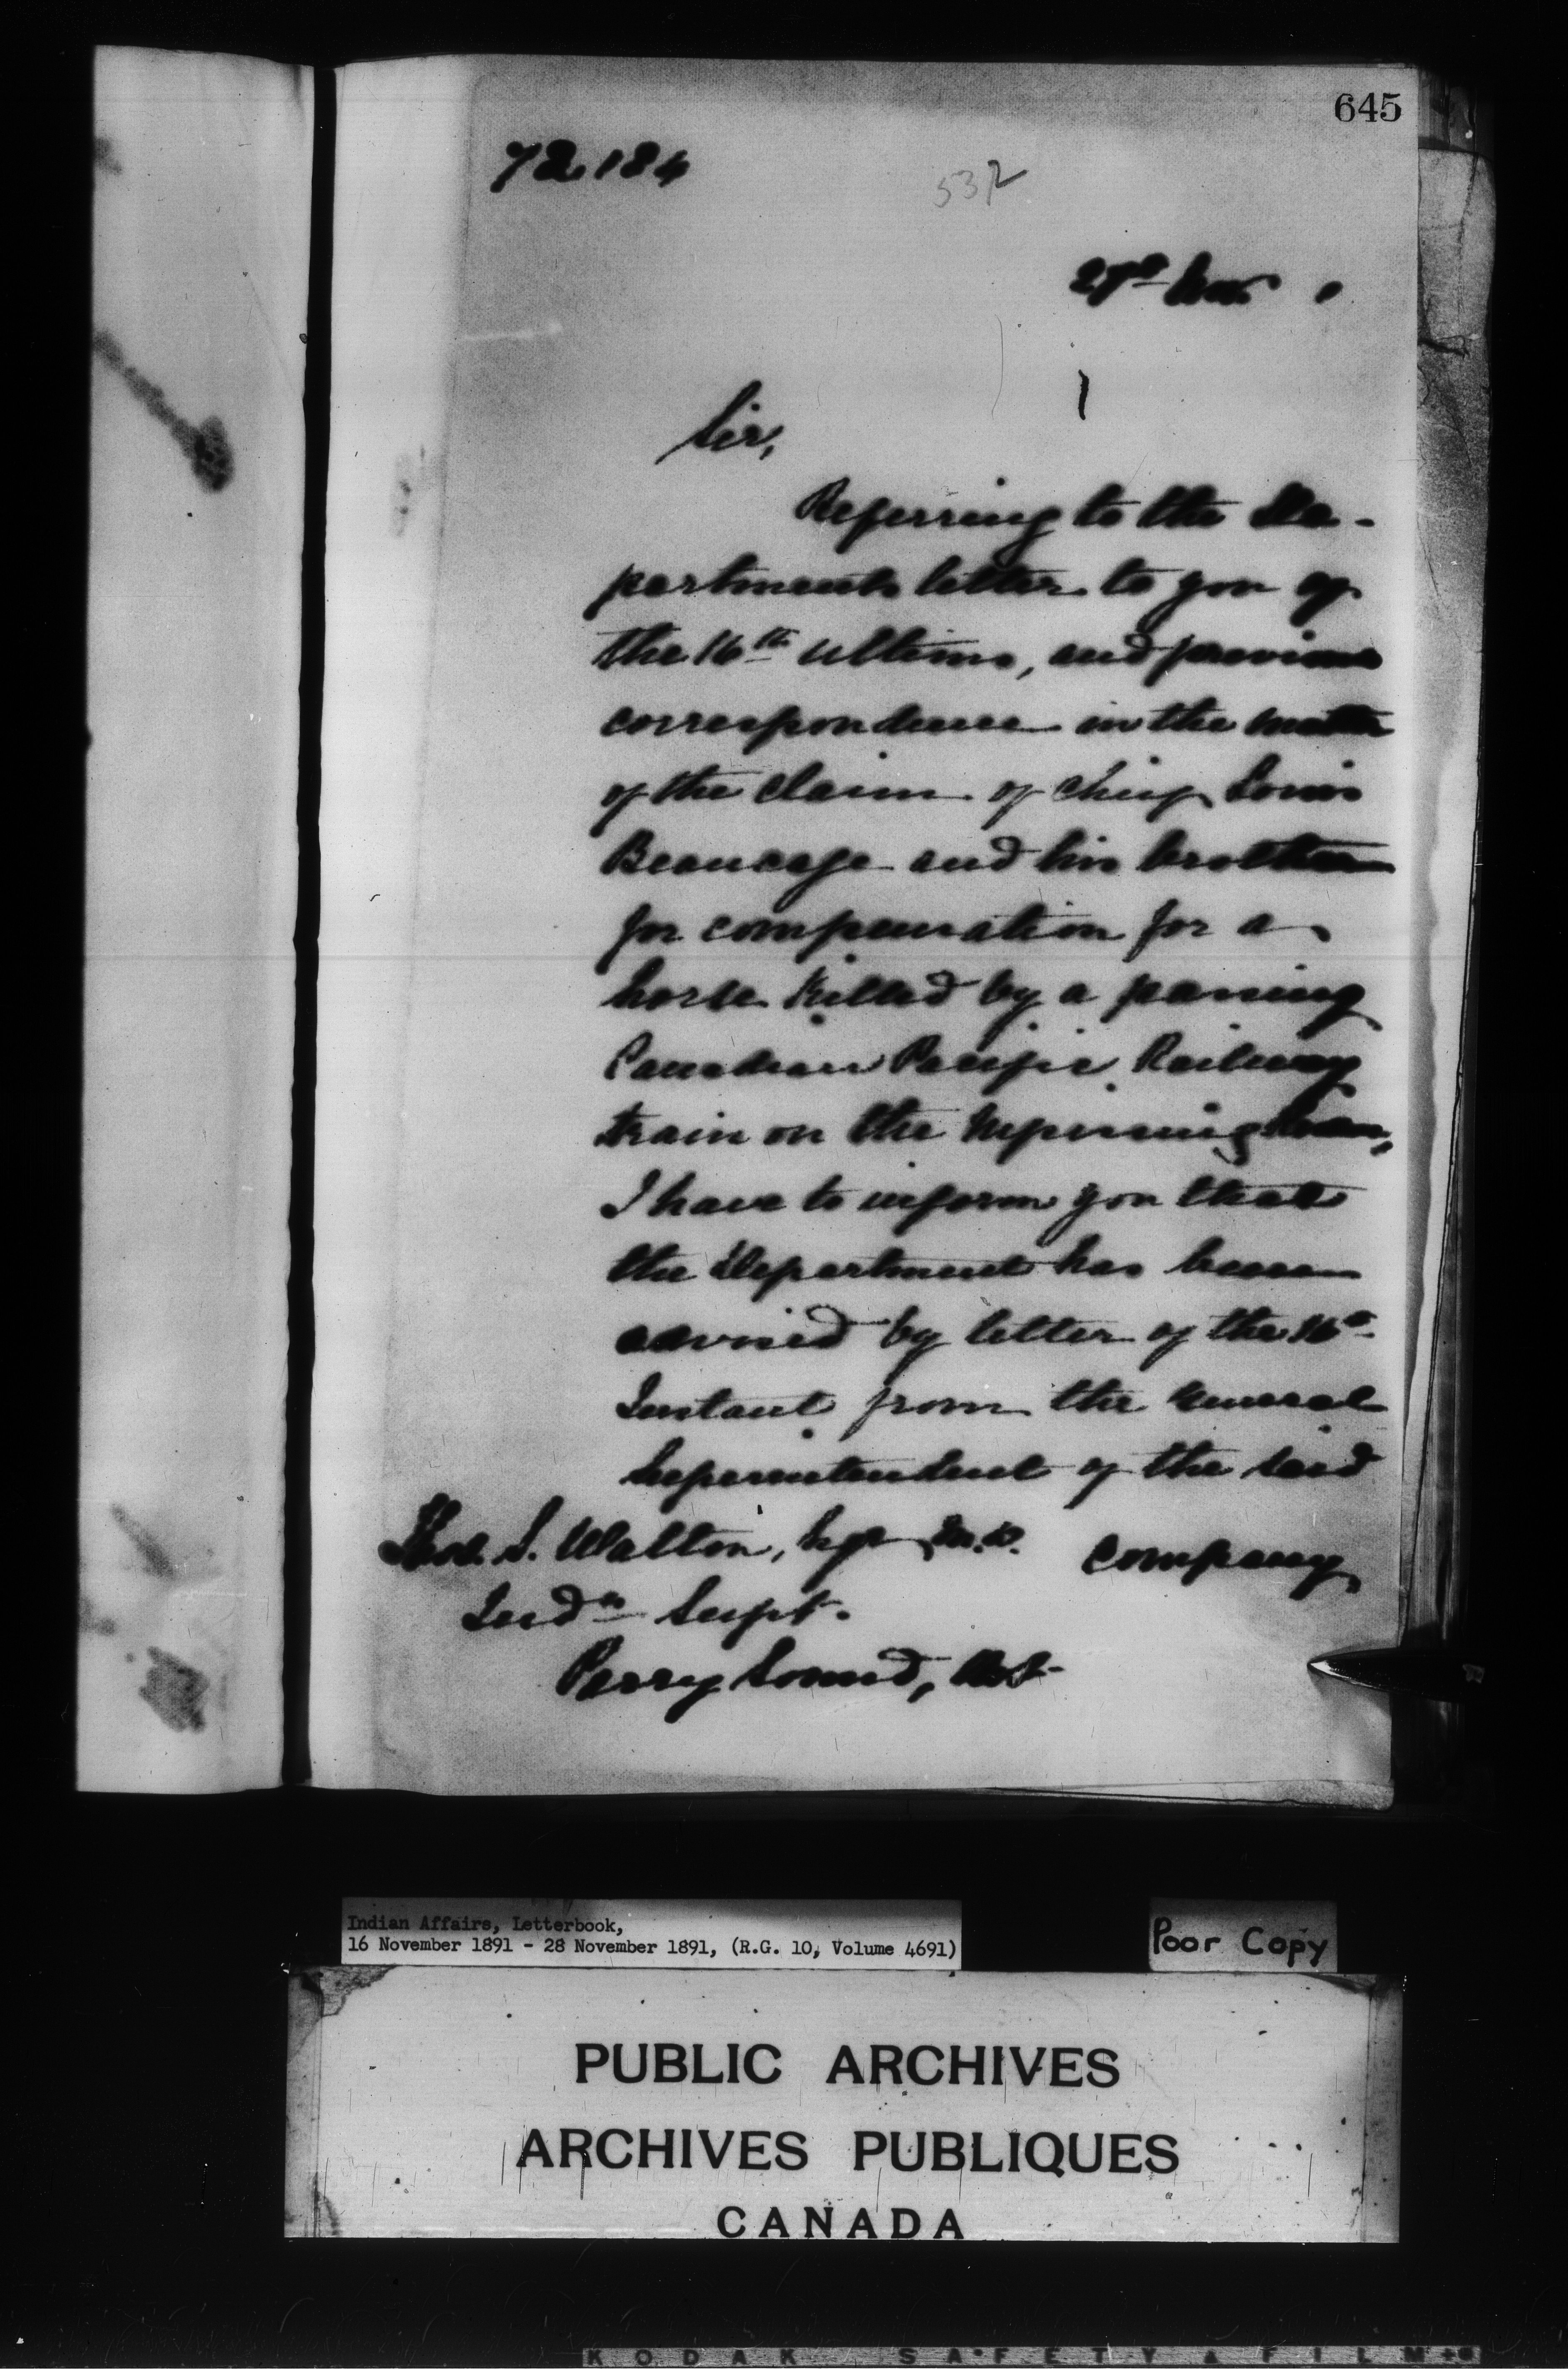 645
72,184
532
27th Nov. 1
Sir,
Referring to the De-
partments letter to you of
the 16th ultimo, and previous
correspondence in the matter
of the claim of Chief Louis
Beaucage and his brother
for compensation for a
horse killed by a passing
Canadian Pacific Railway
train on the Nipissing
I have to inform you that
the Department has been
advised by letter of the 16th
Instant from the General
Superintendent of the said
Company
Thos. S. Walton, Esqr M.D.
Indn Supt.
Parry Sound, Ont
Indian Affairs, Letterbook,
16 November 1891 - 28 November 1891, (R.G. 10, Volume 4691)
Poor Copy
PUBLIC ARCHIVES
ARCHIVES PUBLIQUES
CANADA
KODAK SAFETY FILM